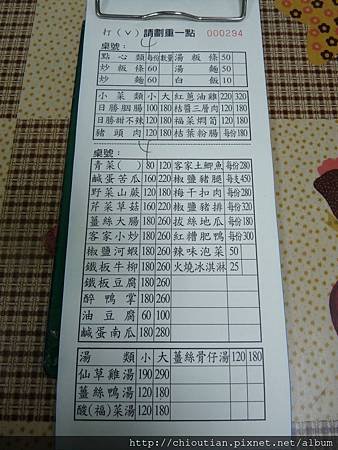 行(ˇ)請劃重一點 000294
桌號: 4
點心類 每份 數量 湯粄條 50
炒粄條 60 湯麵 50
炒麵 60 白飯 10
小菜類 小 大 紅蔥油雞 220 320
日勝胭腸 100 180 桔醬三層肉 120 180
日勝甜不辣 120 180 福菜燜筍 120 180
豬頭肉 120 180 桔葉粉腸 120 180
桌號: 4
青菜( ) 80 120 客家土鯽魚 每份280
鹹蛋苦瓜 160 220 椒鹽豬腿 每支450
野菜山蕨 120 180 梅干扣肉 每份280
芹菜草菇 160 220 椒鹽豬排 每份320
薑絲大腸 180 260 拔絲地瓜 每份180
客家小炒 180 260 紅糟肥鴨 每份300
椒鹽河蝦 180 260 辣味泡菜 50
鐵板牛柳 180 260 火燒冰淇淋 25
鐵板豆腐 180 260
醉鴨掌 180 260
油豆腐 60 100
鹹蛋南瓜 180 280
湯類 小 大 薑絲骨仔湯 120 180
仙草雞湯 190 290
薑絲鴨湯 120 180
酸(福)菜湯 120 180
http://chioutian.pixnet.net/album